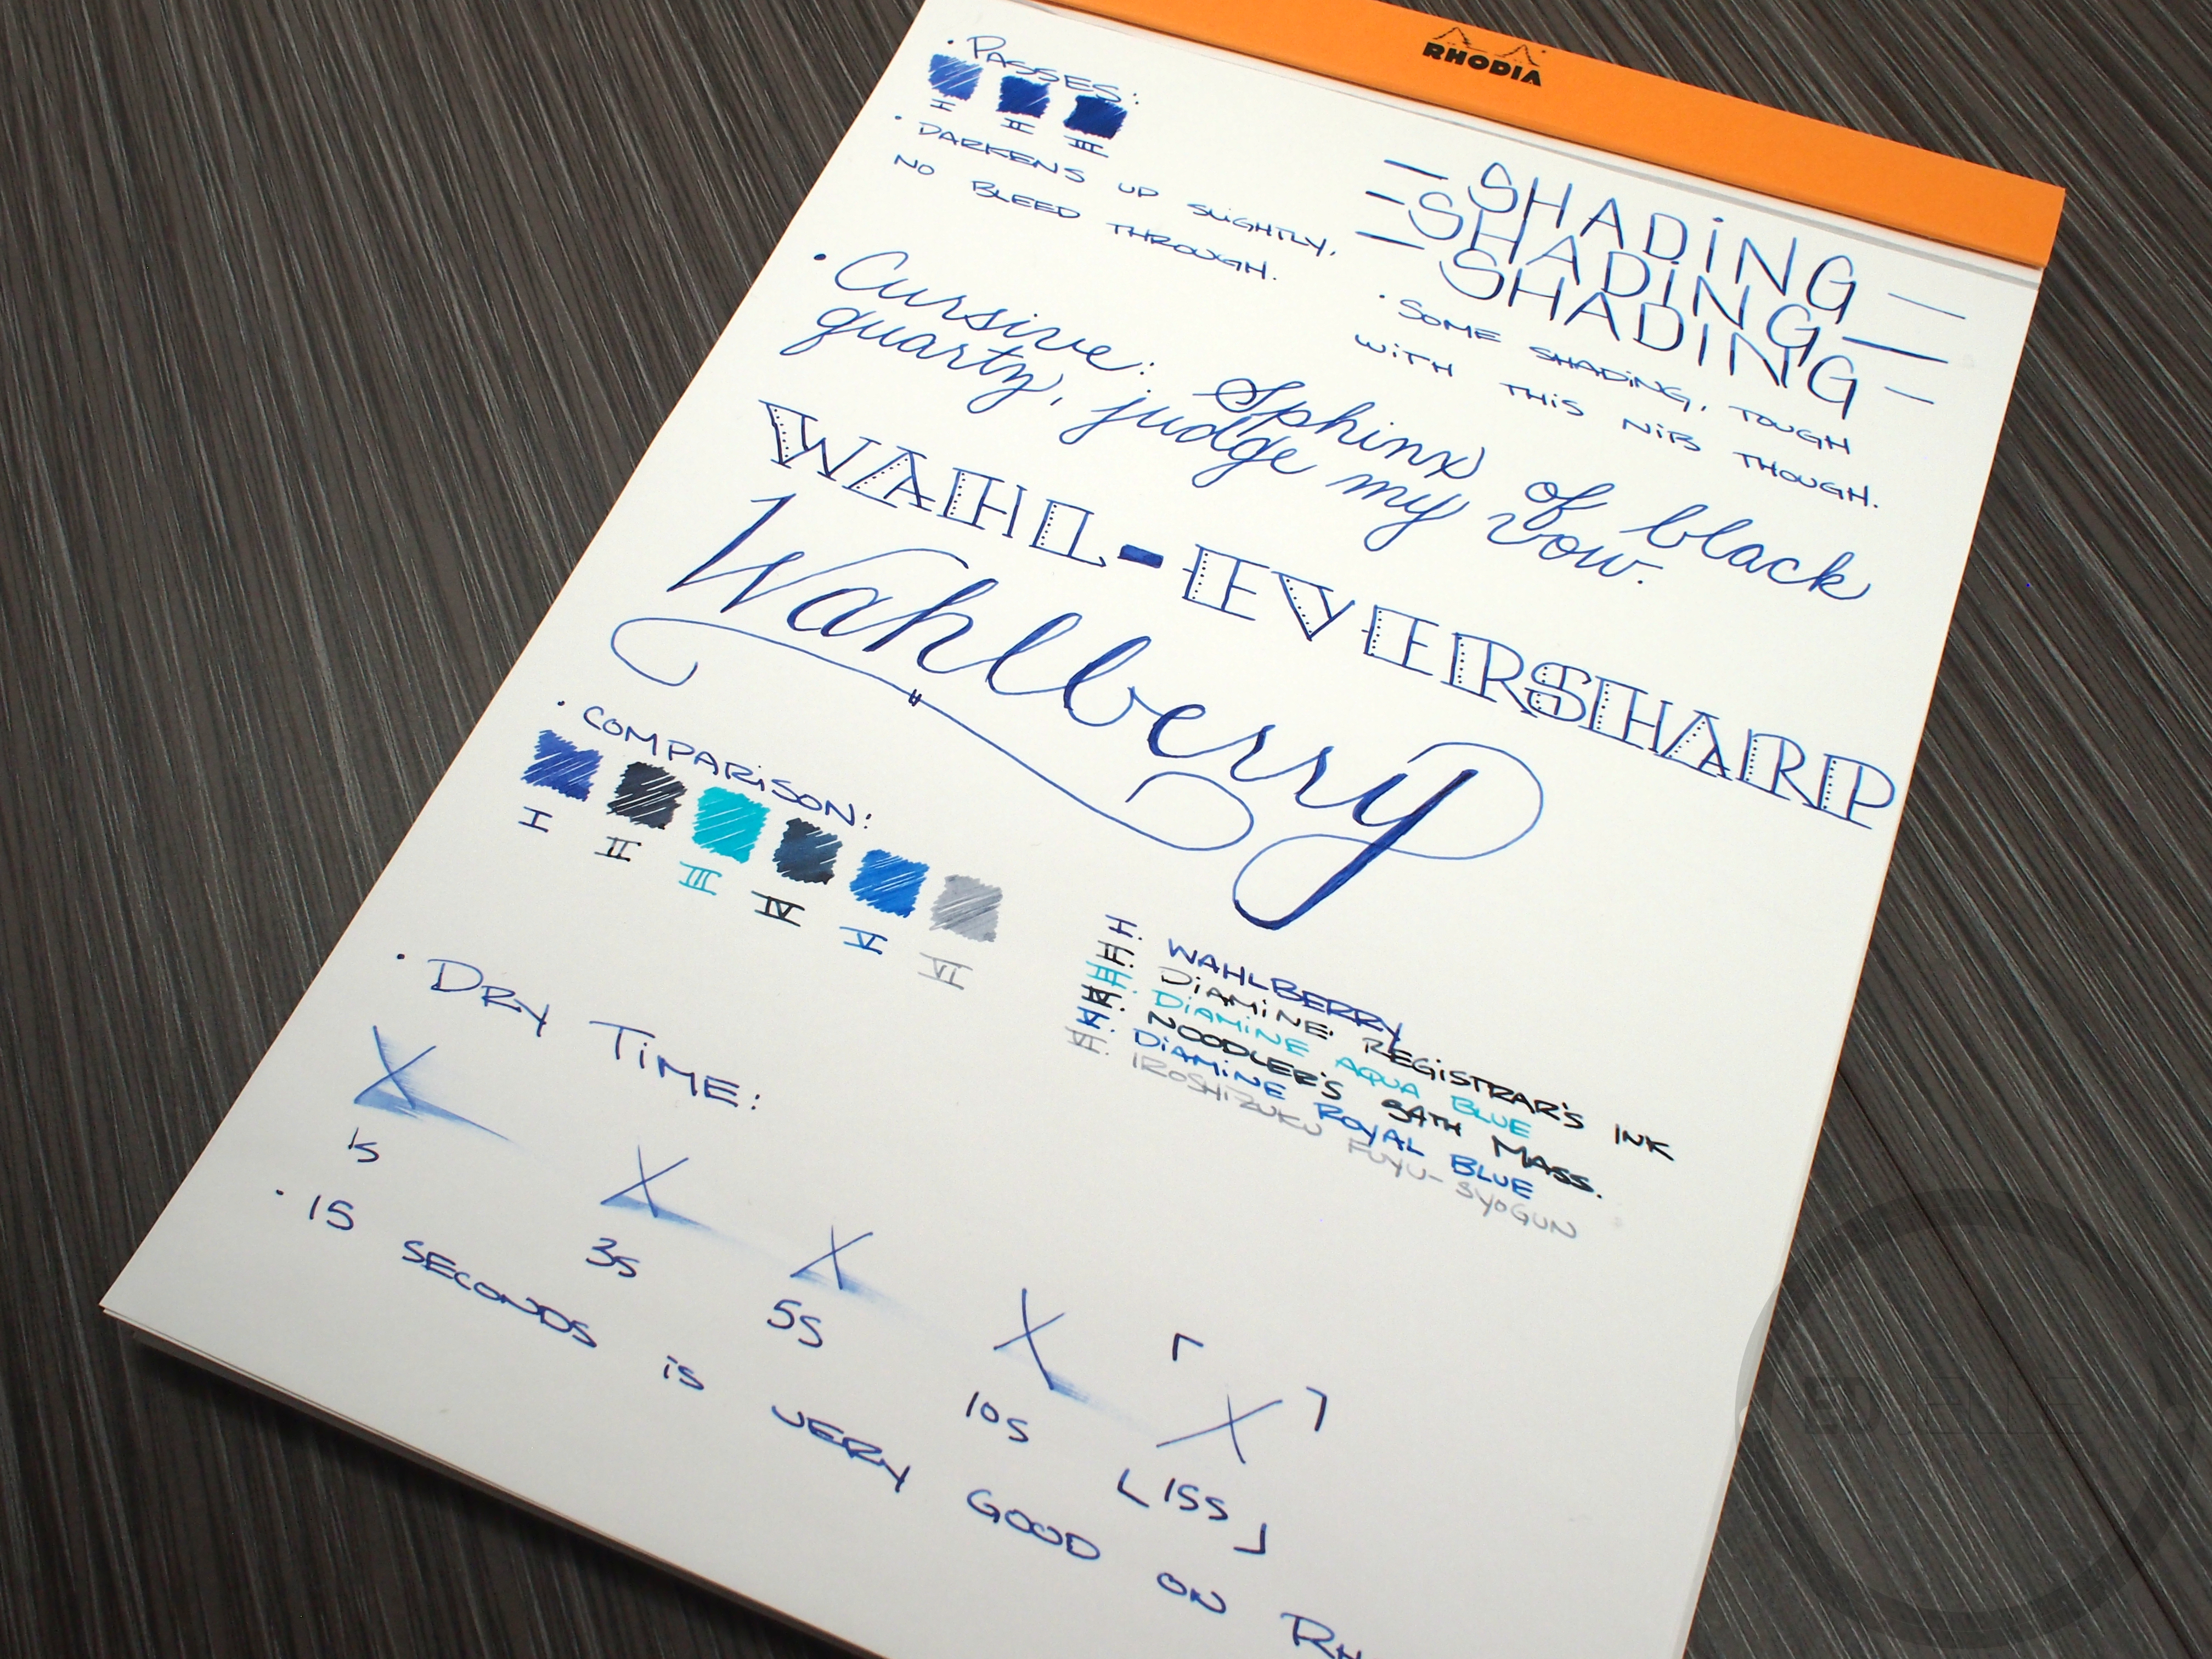 RHODIA
• PASSES:
I II III
• DARKENS UP SLIGHTLY,
NO BLEED THROUGH.
— SHADING —
— SHADING —
— SHADING —
• SOME SHADING, TOUGH
WITH THIS NIB THOUGH.
• Cursive: Sphinx of black
quartz, judge my vow.
WAHL-EVERSHARP
Wahlberry
• COMPARISON:
I II III IV V VI
I. WAHLBERRY
II. DIAMINE REGISTRAR'S INK
III. DIAMINE AQUA BLUE
IV. NOODLER'S 54TH MASS.
V. DIAMINE ROYAL BLUE
VI. IROSHIZUKU FUYU-SYOGUN
• DRY TIME:
X X X X X
1s 3s 5s 10s 15s
• 15 SECONDS IS VERY GOOD ON RH